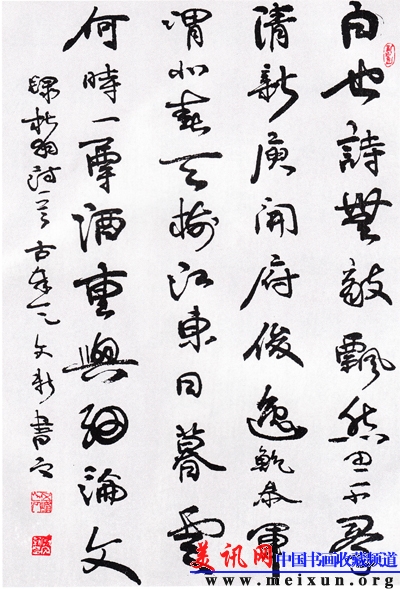 白也詩無敵飄然思不群
清新庾開府俊逸鮑參軍
渭北春天樹江東日暮雲
何時一尊酒重與細論文
詩一首古 文 書
美讯网 中国书画收藏频道
www.meixun.org